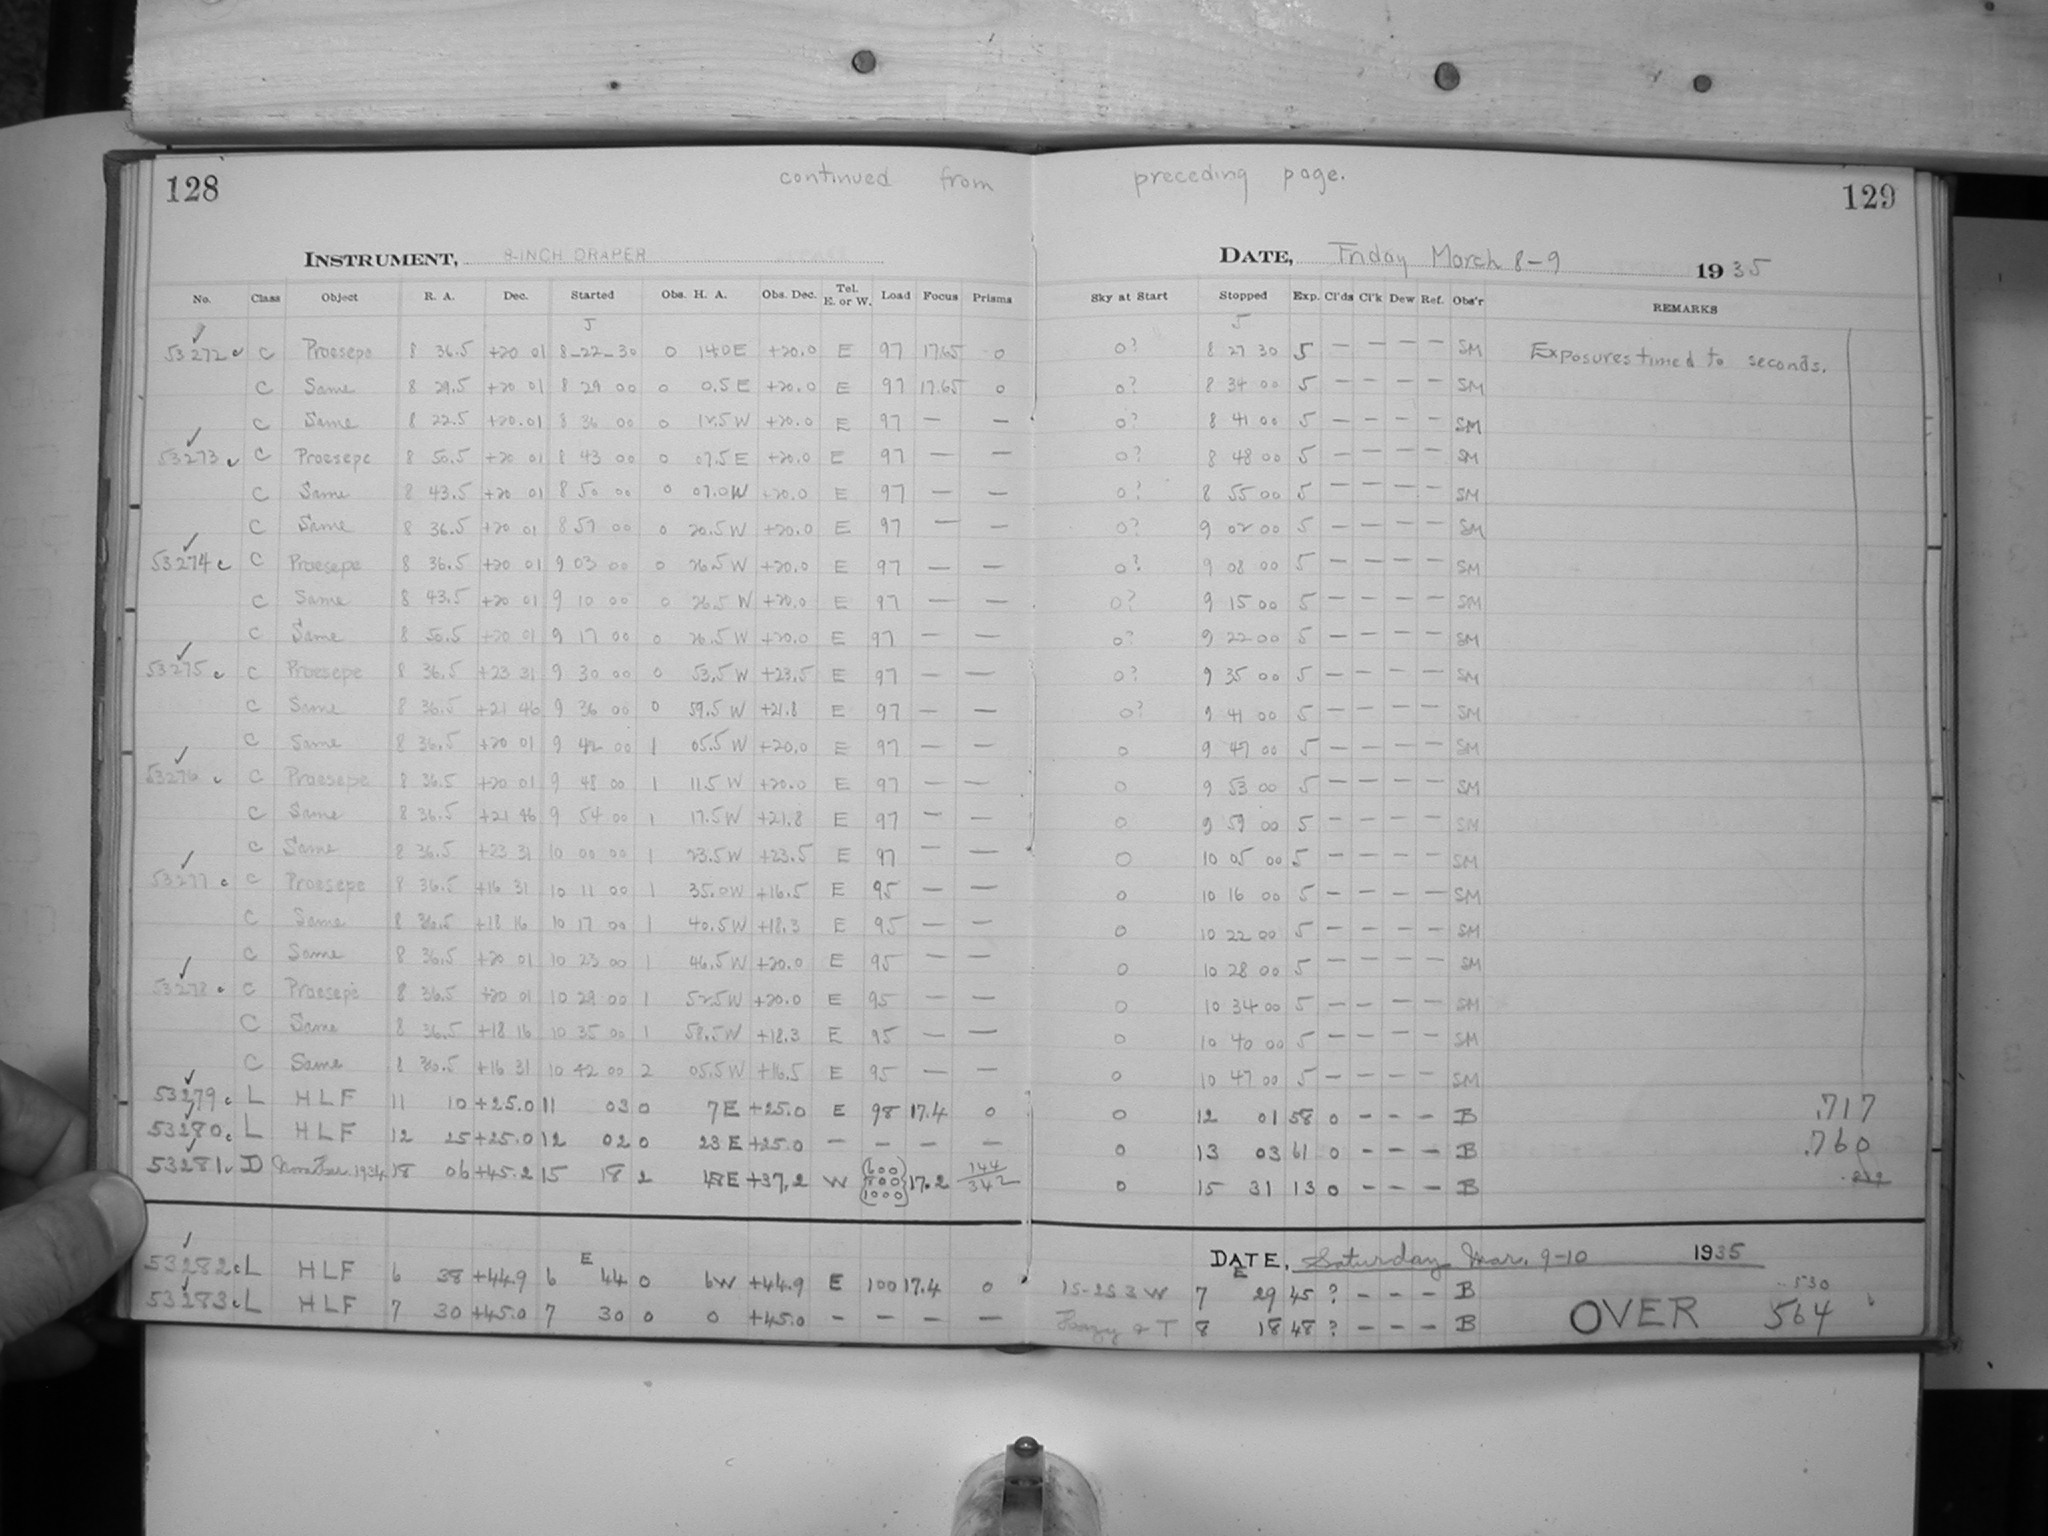 128 continued from preceding page. 129
INSTRUMENT, 8-INCH DRAPER DATE, Friday March 8-9 1935
No. Class Object R. A. Dec. Started Obs. H. A. Obs. Dec. Tel. E. or W. Load Focus Prisms Sky at Start Stopped Exp. Cl'ds Cl'k Dew Ref. Obs'r REMARKS
J J
53272 c C Praesepe 8 36.5 +20 01 8-22-30 0 14.0 E +20.0 E 97 17.65 0 0? 8 27 30 5 — — — — SM Exposures timed to seconds.
C Same 8 29.5 +20 01 8 29 00 0 0.5 E +20.0 E 97 17.65 0 0? 8 34 00 5 — — — — SM
C Same 8 22.5 +20.01 8 36 00 0 W +20.0 E 97 — — 0? 8 41 00 5 — — — — SM
53273 C Praesepe 8 50.5 +20 01 8 43 00 0 07.5 E +20.0 E 97 — — 0? 8 48 00 5 — — — — SM
C Same 8 43.5 +20 01 8 50 00 0 07.0 W +20.0 E 97 — — 0? 8 55 00 5 — — — — SM
C Same 8 36.5 +20 01 8 57 00 0 20.5 W +20.0 E 97 — — 0? 9 02 00 5 — — — — SM
53274 c C Praesepe 8 36.5 +20 01 9 03 00 0 26.5 W +20.0 E 97 — — 0? 9 08 00 5 — — — — SM
C Same 8 43.5 +20 01 9 10 00 0 26.5 W +20.0 E 97 — — 0? 9 15 00 5 — — — — SM
C Same 8 50.5 +20 01 9 17 00 0 26.5 W +20.0 E 97 — — 0? 9 22 00 5 — — — — SM
53275 c C Praesepe 8 36.5 +23 31 9 30 00 0 53.5 W +23.5 E 97 — — 0? 9 35 00 5 — — — — SM
C Same 8 36.5 +21 46 9 36 00 0 59.5 W +21.8 E 97 — — 0? 9 41 00 5 — — — — SM
C Same 8 36.5 +20 01 9 42 00 1 05.5 W +20.0 E 97 — — 0 9 47 00 5 — — — — SM
53276 c C Praesepe 8 36.5 +20 01 9 48 00 1 11.5 W +20.0 E 97 — — 0 9 53 00 5 — — — — SM
C Same 8 36.5 +21 46 9 54 00 1 17.5 W +21.8 E 97 — — 0 9 59 00 5 — — — — SM
C Same 8 36.5 +23 31 10 00 00 1 23.5 W +23.5 E 97 — — 0 10 05 00 5 — — — — SM
53277 c C Praesepe 8 36.5 +16 31 10 11 00 1 35.0 W +16.5 E 95 — — 0 10 16 00 5 — — — — SM
C Same 8 36.5 +18 16 10 17 00 1 40.5 W +18.3 E 95 — — 0 10 22 00 5 — — — — SM
C Same 8 36.5 +20 01 10 23 00 1 46.5 W +20.0 E 95 — — 0 10 28 00 5 — — — — SM
53278 c C Praesepe 8 36.5 +20 01 10 29 00 1 52.5 W +20.0 E 95 — — 0 10 34 00 5 — — — — SM
C Same 8 36.5 +18 16 10 35 00 1 58.5 W +18.3 E 95 — — 0 10 40 00 5 — — — — SM
C Same 8 36.5 +16 31 10 42 00 2 05.5 W +16.5 E 95 — — 0 10 47 00 5 — — — — SM
53279 c L HLF 11 10 +25.0 11 03 0 7 E +25.0 E 98 17.4 0 0 12 01 58 0 - - - B .717
53280 c L HLF 12 25 +25.0 12 02 0 23 E +25.0 — — — — 0 13 03 61 0 - - - B .760
53281 D Nova Her. 1934 18 06 +45.2 15 18 2 E +37.2 W (600 800 1000) 17.2 144/342 0 15 31 13 0 - - - B
DATE, Saturday Mar. 9-10 1935
E E
53282 c L HLF 6 38 +44.9 6 44 0 6 W +44.9 E 100 17.4 0 15-25 3 W 7 29 45 ? - - - B .530
53283 c L HLF 7 30 +45.0 7 30 0 0 +45.0 — — — — Hazy & T 8 18 48 ? - - - B OVER 564